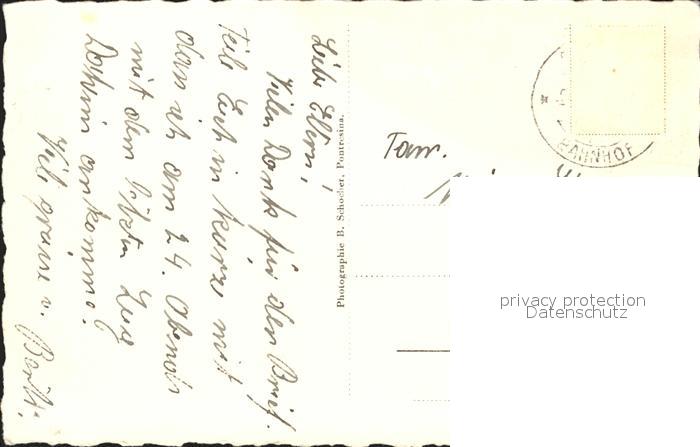 Liebe Eltern,
Vielen Dank für den Brief.
Teile Euch in kürze mit
dass ich am 24. Abends
mit dem letzten Zug
Dahim ankomme.
Viele grüsse v.
Photographie B. Schocher, Pontresina.
Fam.
BAHNHOF
privacy protection
Datenschutz